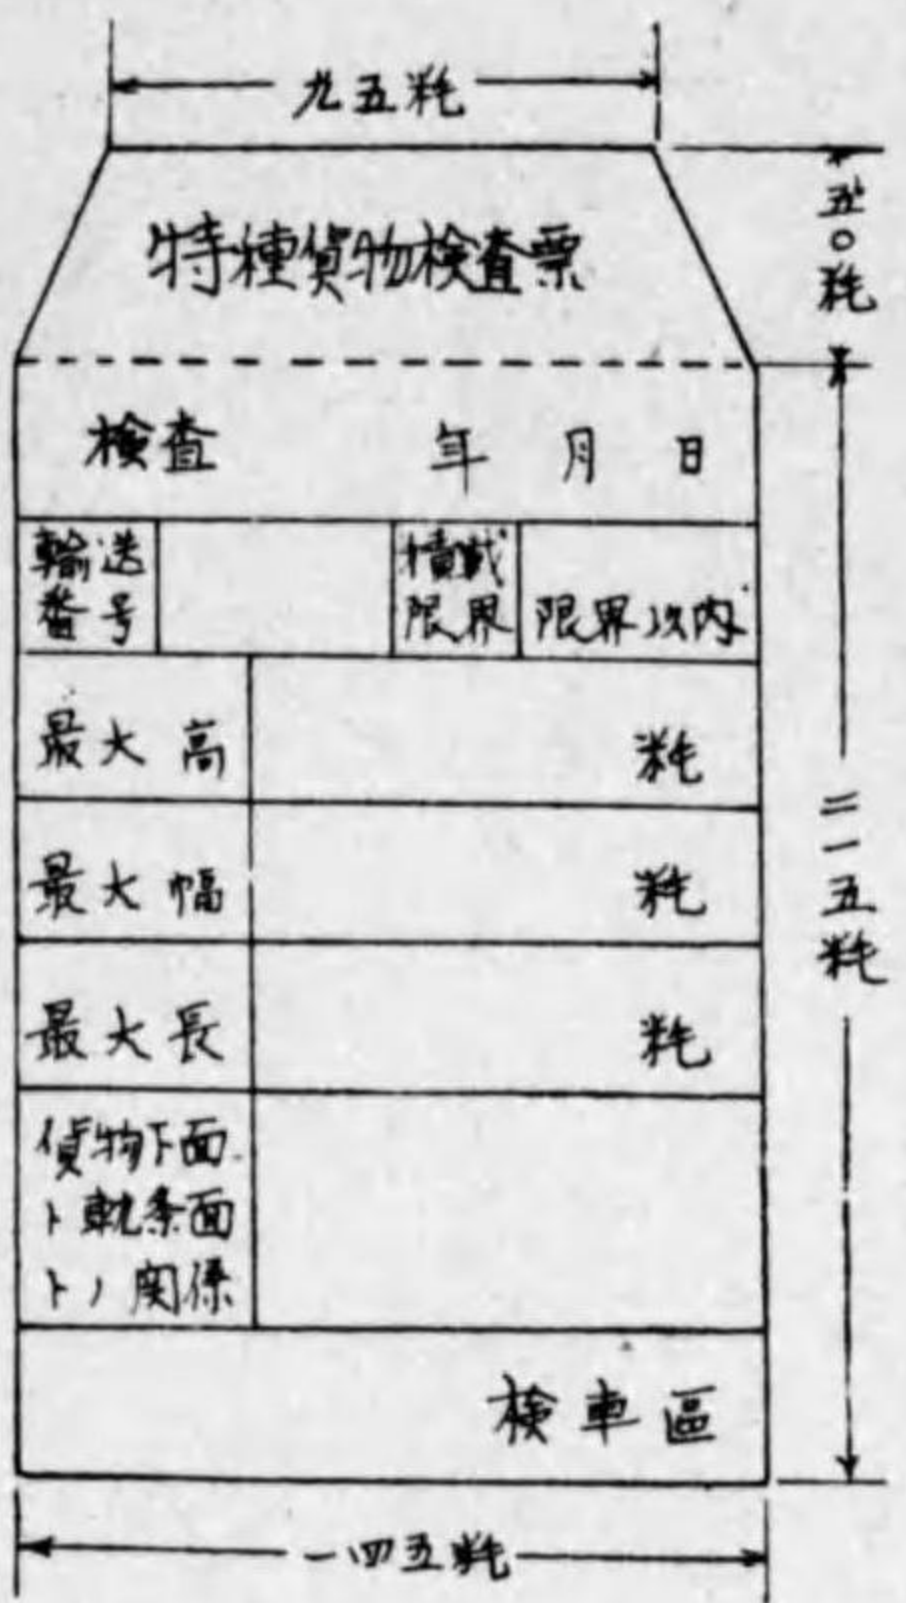 九五粍
五〇粍
特種貨物検査票
検査 年 月 日
輸送
番号
積載
限界
限界以内
最大高 粍
最大幅 粍
二一五粍
最大長 粍
貨物下面
ト軌条面
トノ関係
検車區
一四五粍